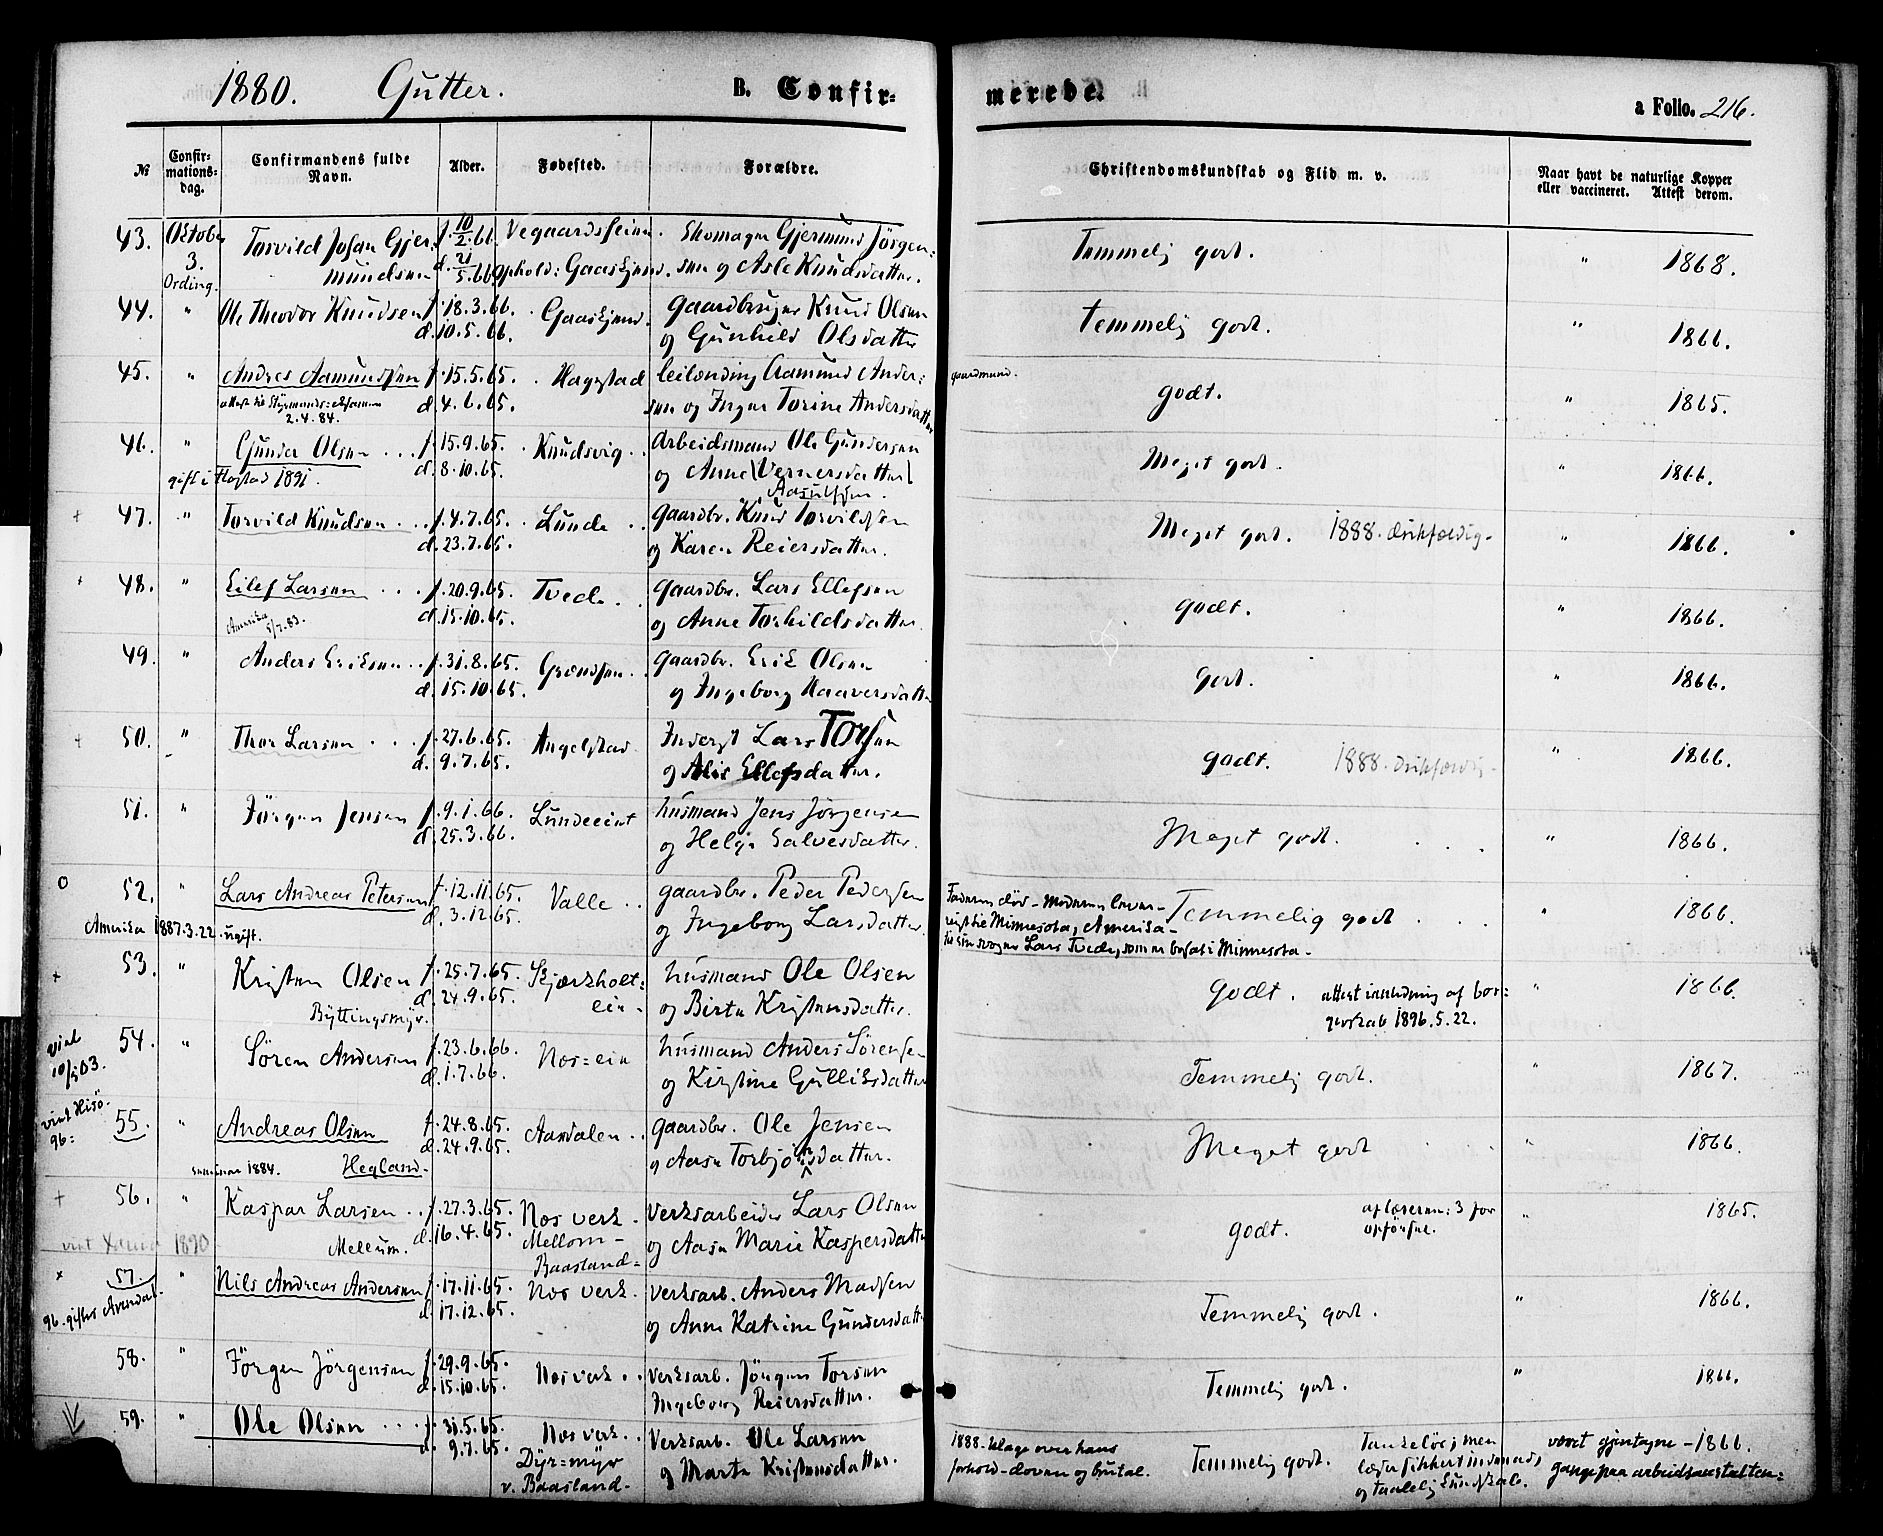 1880. Gutter. B. Confir=
merede. a Folio. 216.
№ Confir=mations=dag. Confirmandens fulde Navn. Alder. Fødested. Forældre. Christendomskundskab og Flid m. v. Naar havt de naturlige Kopper eller vaccineret. Attest derom.
43. Oktober Torvild Johan Gjer- f. 10/2.66. Vegaardsheien. Skomager Gjermund Jörgen= Temmelig godt. " 1868.
3. mundsen d. 21/5.66 Ophold: Gaaskjend. sen og Asle Knudsdatter.
Ording.
44. " Ole Theodor Knudsen f. 18.3.66. Gaaskjend. Gaardbruger Knud Olsen temmelig godt. " 1866.
d. 10.5.66. og Gunhild Olsdatter
45. " Andres Aamundsen f. 15.5.65. Hagestad leilending Aamund Ander= gaardmand. godt. " 1865.
attest til Styrmands:eksamen d. 4.6.65. sen og Inger Torine Andersdatter
2.4.84.
46. " Gunder Olsen f. 15.9.65. Knudsvig Arbeidsmand Ole Gundersen Meget godt. " 1866.
gift i 1891. d. 8.10.65. og Anne (Vernersdatter)
+ 47. " Torvild Knudsen f. 4.7.65. Lunde Gaardbr. Knud Torvildsen Meget godt. 1888. drikfældig- " 1866.
d. 23.7.65. og Karen Reiersdatter.
+ 48. " Eilef Larsen f. 20.9.65. Tvede Gaardbr. Lars Ellefsen godt. " 1866.
Amerika 5/7.83. d. 15.10.65. og Anne Torkildsdatter.
49. " Anders Eriksen f. 31.8.65. Grændsen Gaardbr. Erik Olsen godt. " 1866.
d. 15.10.65. og Ingeborg Haaversdatter
+ 50. " Thor Larsen f. 27.6.65. Angelstad Inderst Lars Torsen godt. 1888. drikfældig- " 1866.
d. 9.7.65. og Alis Ellefsdatter.
51. " Jörgen Jensen f. 9.1.66. Lundeeiet husmand Jens Jörgensen Meget godt. " 1866.
d. 25.3.66. og Helge Salvesdatter.
o 52. " Lars Andreas Petersen f. 12.11.65. Valle gaardbr. Peder Pedersen Faderen död - Moderen Temmelig godt " 1866.
Amerika 1887.3.22. ugift. d. 3.12.65. og Ingeborg Larsdatter. reist til Minnesota, Amerika-
til sin svoger Lars Tvede, som er bosat i Minnesota-
+ 53. " Kristen Olsen f. 25.7.65. Skjærkholt= husmand Ole Olsen godt. attest i anledning af bor= " 1866.
Byttingsmyr. d. 24.9.65. eie- og Birte Kristensdatter. gerskab 1896.5.22.
viet 10/5 03. 54. " Sören Andersen f. 23.6.66. Nes=eie husmand Anders Sörensen Temmelig godt. " 1867.
d. 1.7.66. og Kirstine Gulliksdatter
viet Hisö- 96: 55. " Andreas Olsen f. 24.8.65. Aasdalen Gaardbr. Ole Jensen Meget godt " 1866.
1884. Hegland. d. 24.9.65. og Aase Torbjörnsdatter.
+ 56. " Kaspar Larsen f. 27.3.65. Nes verk. Verksarbeider Lars Olsen godt. aflæseren: 3 for opförsel. " 1865.
1890 Mellum. d. 16.4.65. Mellom-Baasland= og Aase Marie Kaspersdatter
+ 57. " Nils Andreas Andersen f. 17.11.65. Nes verk. verksarb. Anders Madsen Temmelig godt. " 1866.
96. giftes Arendal. d. 17.12.65. og Anne Katrine Gundersdatter
58. " Jörgen Jörgensen f. 29.9.65. Nes verk verksarb. Jörgen Torsen Temmelig godt. " 1866.
d. 15.10.65. Ingeborg Reiersdatter.
59. " Ole Olsen f. 31.5.65. Nes verk. Verksarb. Ole Larsen 1888-klage over hans Temmelig godt. Tankelös; men været gjentagne -1866.
d. 9.7.65. Dyr=myr og Marte Kristensdatter. forhold-doven og brutal. læser sikkert indenad, gange paa arbeidsanstalten=
v. Baasland- og taalelig kundskab.